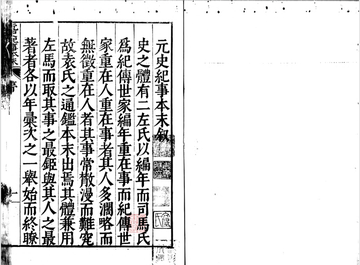 元史紀事本末叙
史之體有二左氏以編年而司馬氏
爲紀傳世家編年重在事而紀傳世
家重在人重在事者其人多濶略而
無徵重在人者其事常散漫而難究
故袁氏之通鑑本末出焉其體兼用
左馬而取其事之最鉅與其人之最
著者各以年彙次之一舉始而終瞭